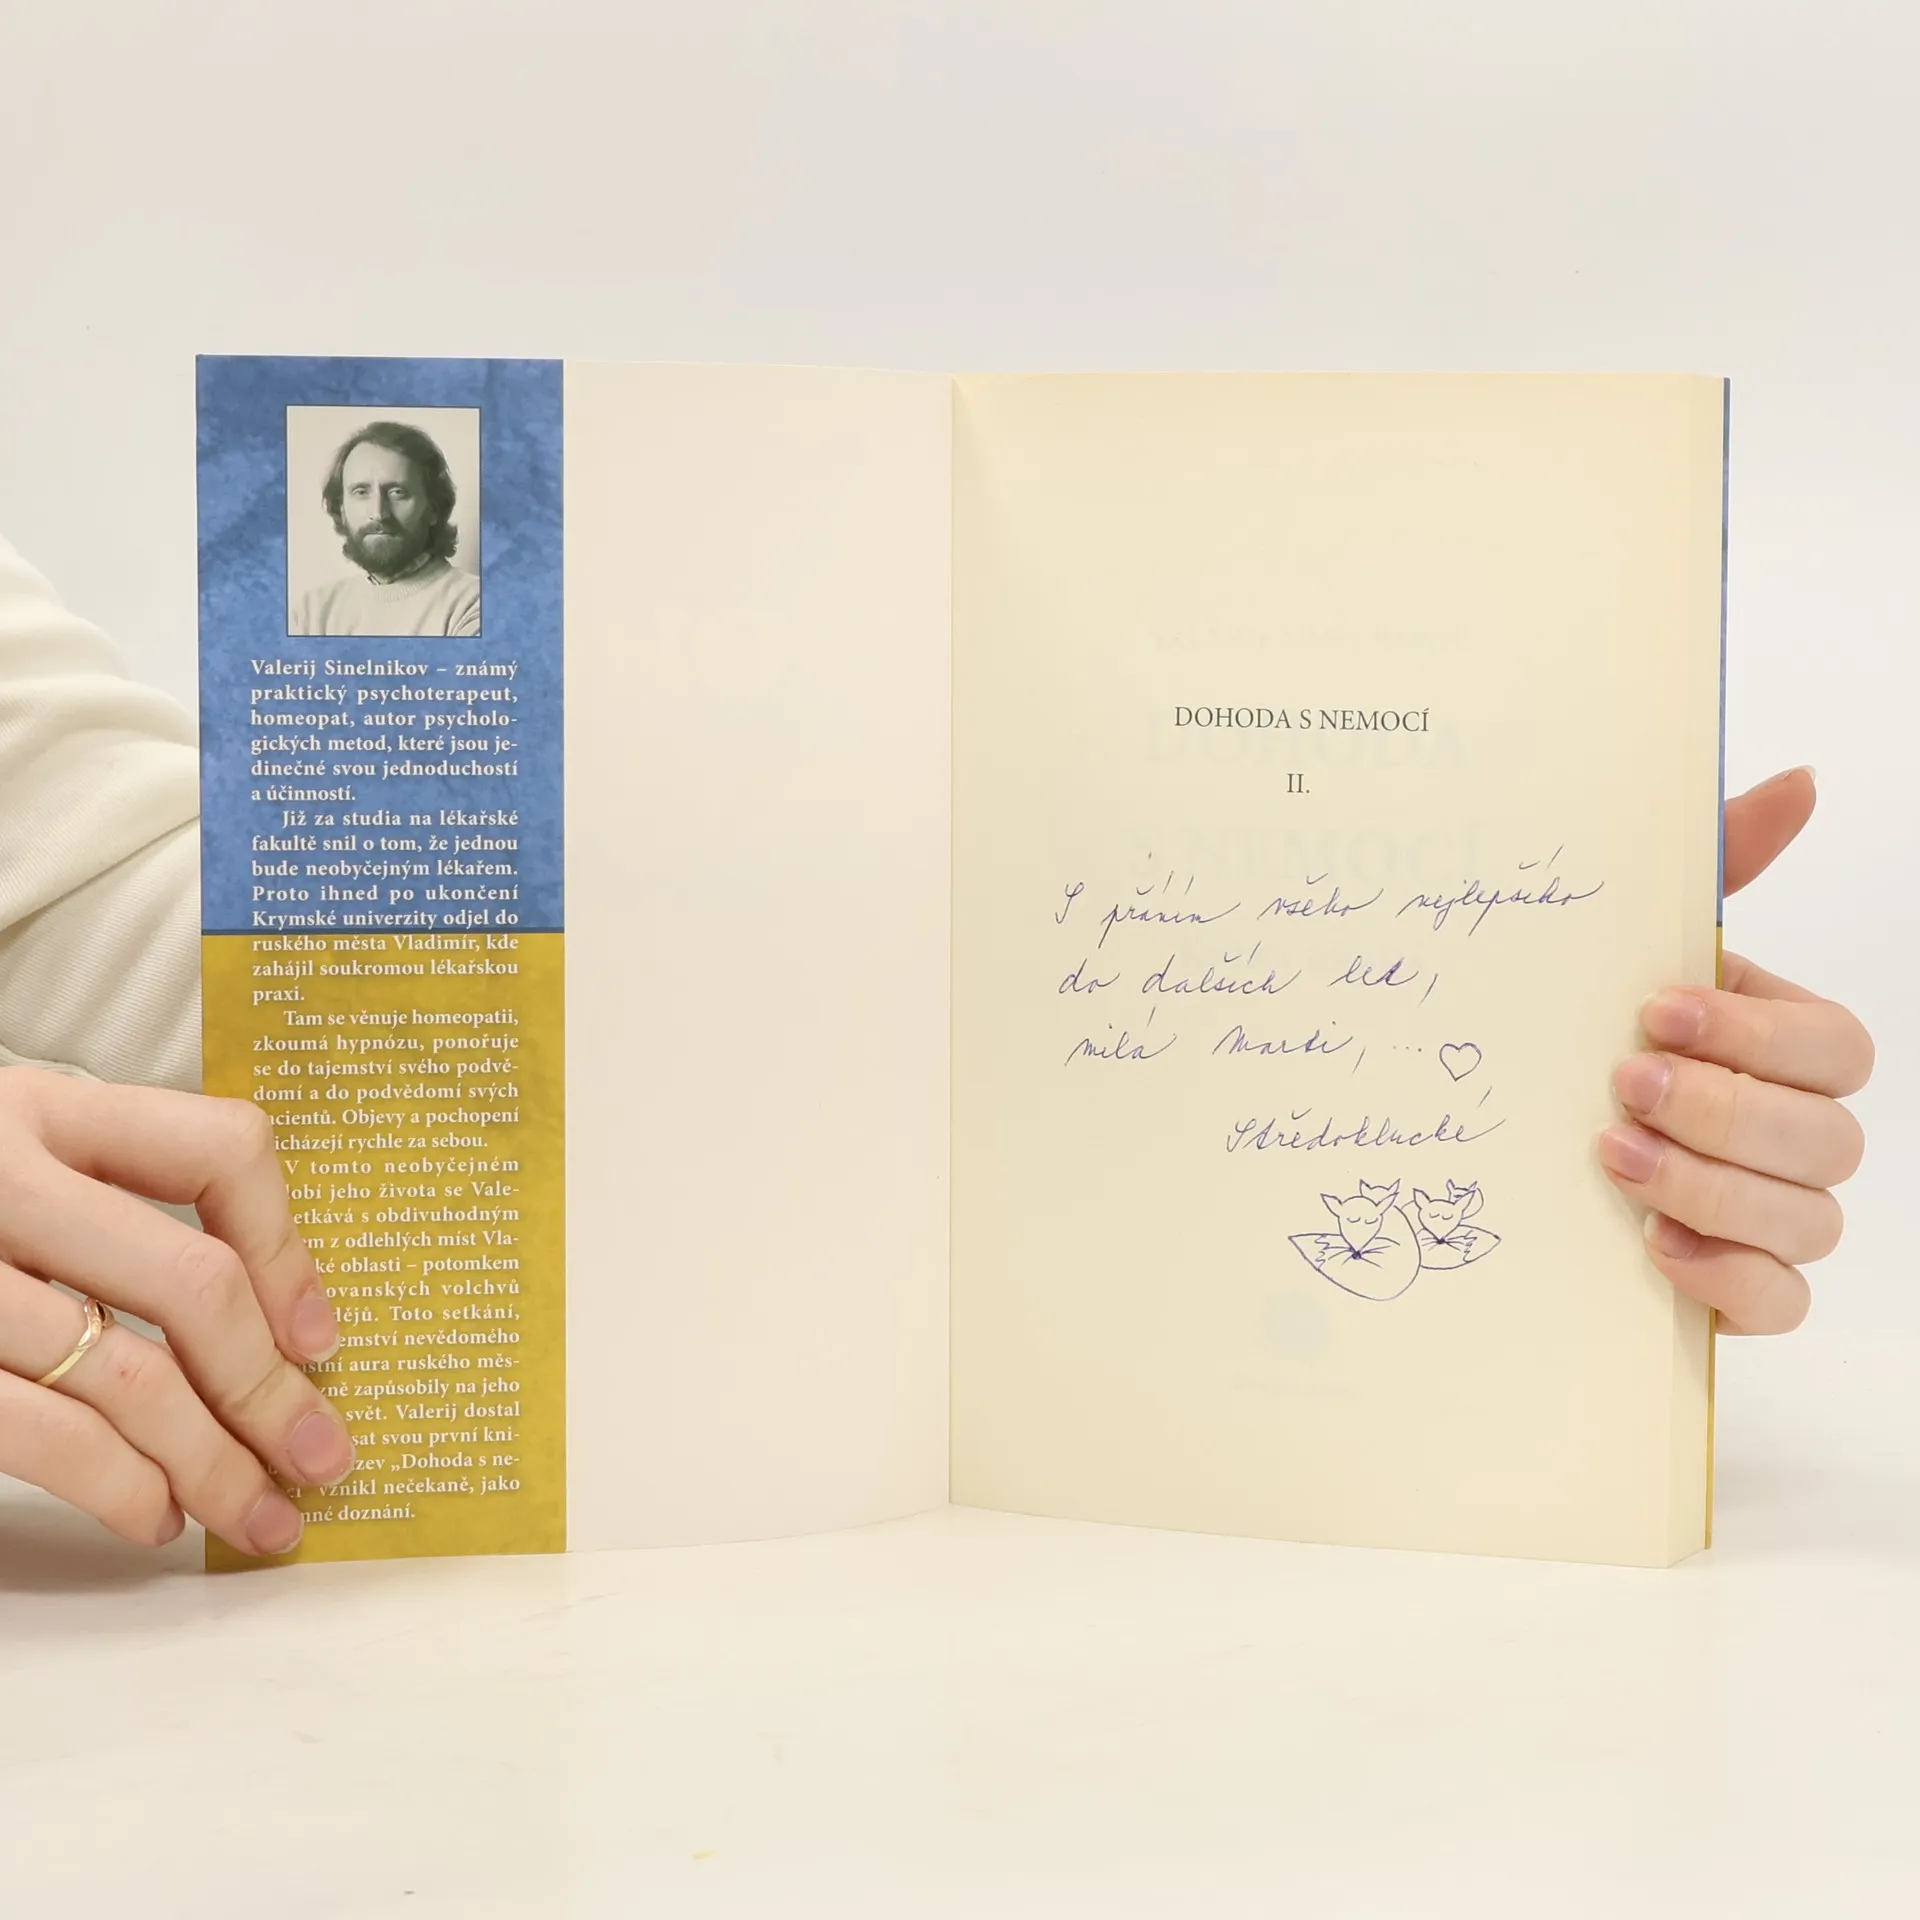 Valerij Sinelnikov – známý
praktický psychoterapeut,
homeopat, autor psycholo-
gických metod, které jsou je-
dinečné svou jednoduchostí
a účinností.
Již za studia na lékařské
fakultě snil o tom, že jednou
bude neobyčejným lékařem.
Proto ihned po ukončení
Krymské univerzity odjel do
ruského města Vladimír, kde
zahájil soukromou lékařskou
praxi.
Tam se věnuje homeopatii,
zkoumá hypnózu, ponořuje
se do tajemství svého podvě-
domí a do podvědomí svých
cientů. Objevy a pochopení
icházejí rychle za sebou.
V tomto neobyčejném
obí jeho života se Vale-
etkává s obdivuhodným
em z odlehlých míst Vla-
ké oblasti – potomkem
ovanských volchvů
dějů. Toto setkání,
emství nevědomého
astní aura ruského měs-
zně zapůsobily na jeho
svět. Valerij dostal
sat svou první kni-
zev „Dohoda s ne-
cí“ vznikl nečekaně, jako
nné doznání.
DOHODA S NEMOCÍ
II.
S přáním všeho nejlepšího
do dalších let,
milá Marti, ... ♡
Středoklucké